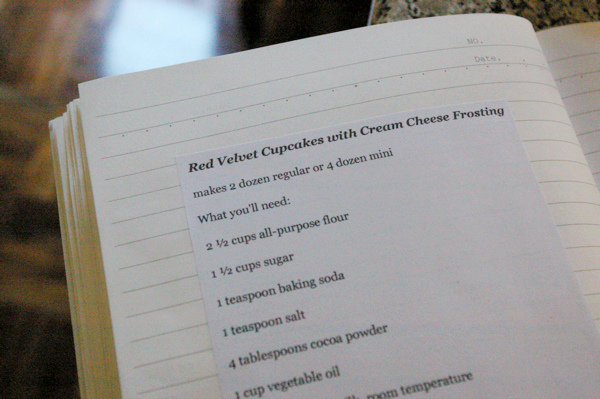 NO.
Date.
Red Velvet Cupcakes with Cream Cheese Frosting
makes 2 dozen regular or 4 dozen mini
What you'll need:
2 ½ cups all-purpose flour
1 ½ cups sugar
1 teaspoon baking soda
1 teaspoon salt
4 tablespoons cocoa powder
1 cup vegetable oil
room temperature